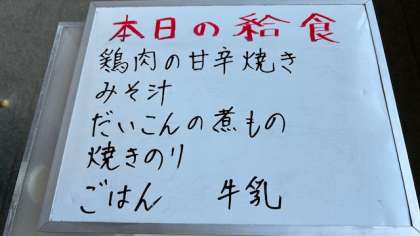 本日の給食
鶏肉の甘辛焼き
みそ汁
だいこんの煮もの
焼きのり
ごはん　牛乳